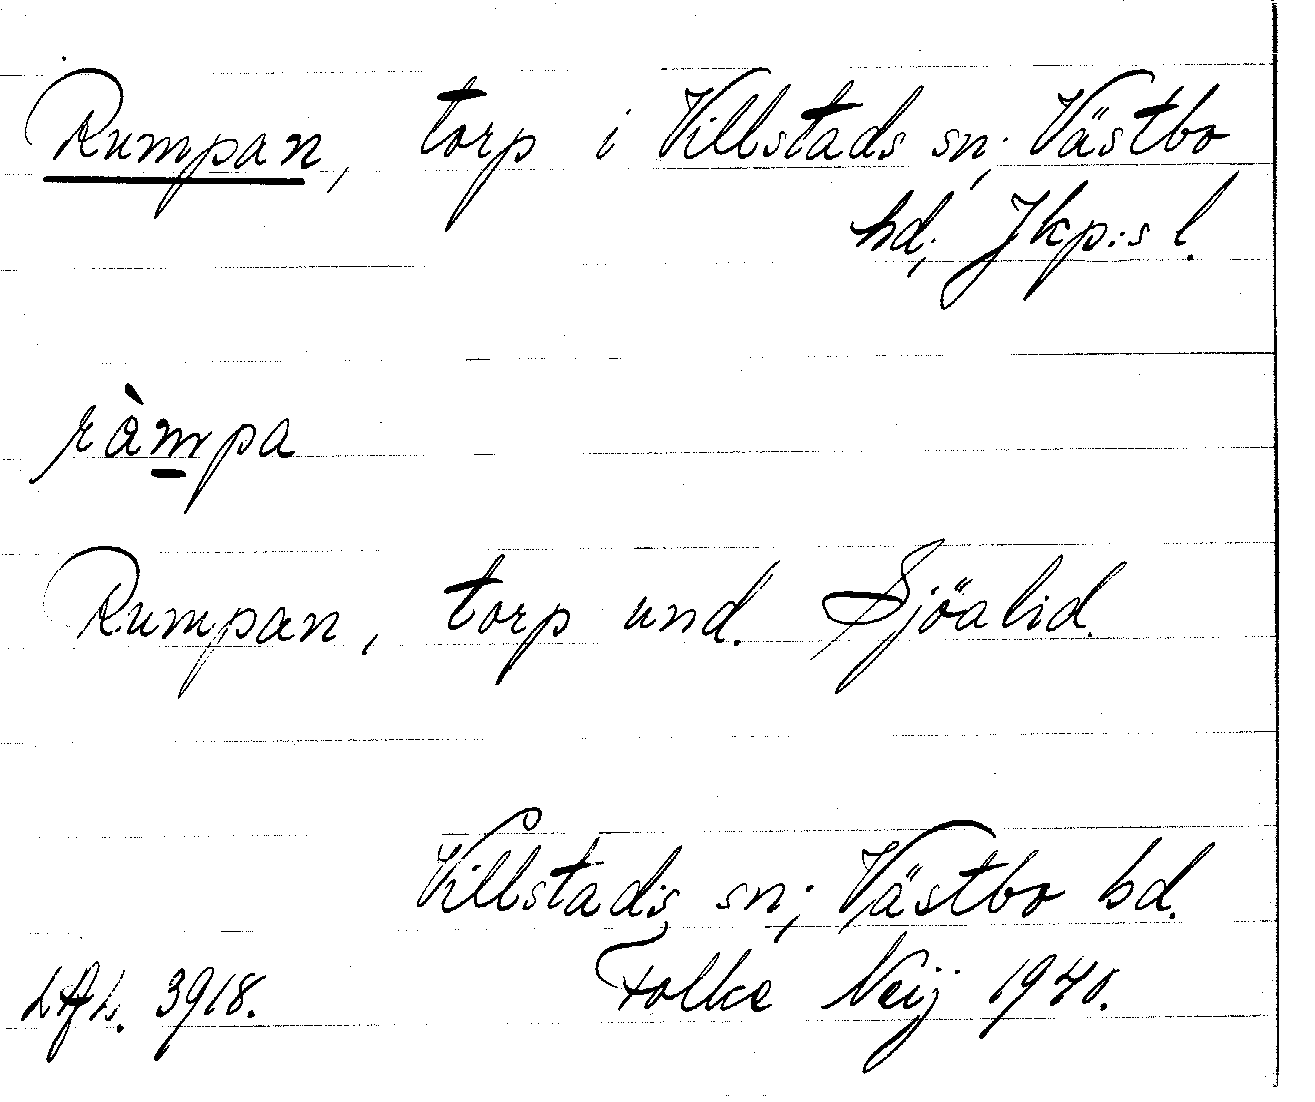 Rumpan, torp i Villstads sn; Västbo
hd; Jkp:s l.
ràmpa
Rumpan, torp und. Sjöalid.
Villstads sn; Västbo hd.
Folke Neij 1940.
3918.